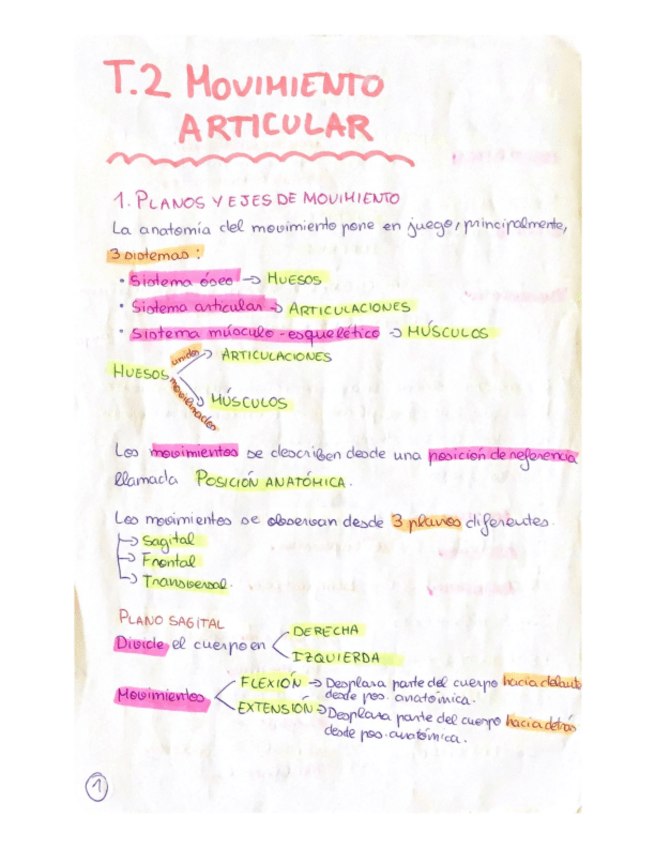 T.2 MOVIMIENTO
ARTICULAR
1. PLANOS Y EJES DE MOVIMIENTO
La anatomía del movimiento pone en juego, principalmente,
3 sistemas:
• Sistema óseo → HUESOS
• Sistema articular → ARTICULACIONES
• Sistema músculo-esquelético → MÚSCULOS
unidos → ARTICULACIONES
HUESOS
movilizados → MÚSCULOS
Los movimientos se describen desde una posición de referencia
llamada POSICIÓN ANATÓMICA.
Los movimientos se observan desde 3 planos diferentes.
→ Sagital
→ Frontal
→ Transversal.
PLANO SAGITAL
DERECHA
Divide el cuerpo en
IZQUIERDA
FLEXIÓN → Desplaza parte del cuerpo hacia delante
desde pos. anatómica.
Movimientos
EXTENSIÓN → Desplaza parte del cuerpo hacia detrás
desde pos. anatómica.
1